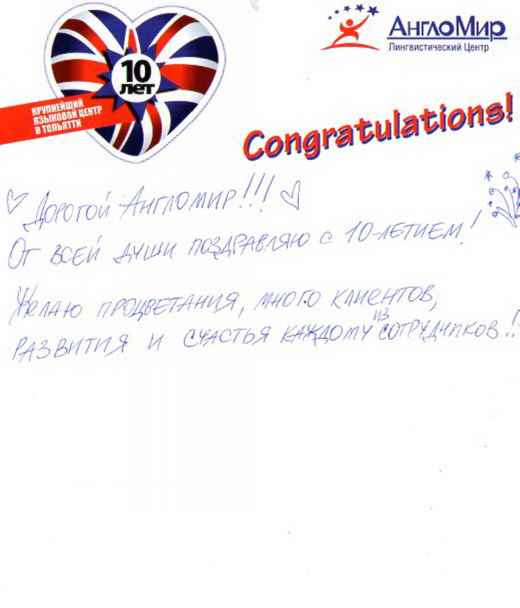 10
лет
КРУПНЕЙШИЙ
ЯЗЫКОВОЙ ЦЕНТР
В ТОЛЬЯТТИ
АнглоМир
Лингвистический Центр
Congratulations!
ДОРОГОЙ АНГЛОМИР!!!
ОТ ВСЕЙ ДУШИ ПОЗДРАВЛЯЮ С 10-ЛЕТИЕМ!
ЖЕЛАЮ ПРОЦВЕТАНИЯ, МНОГО КЛИЕНТОВ,
РАЗВИТИЯ И СЧАСТЬЯ КАЖДОМУ ИЗ СОТРУДНИКОВ!!